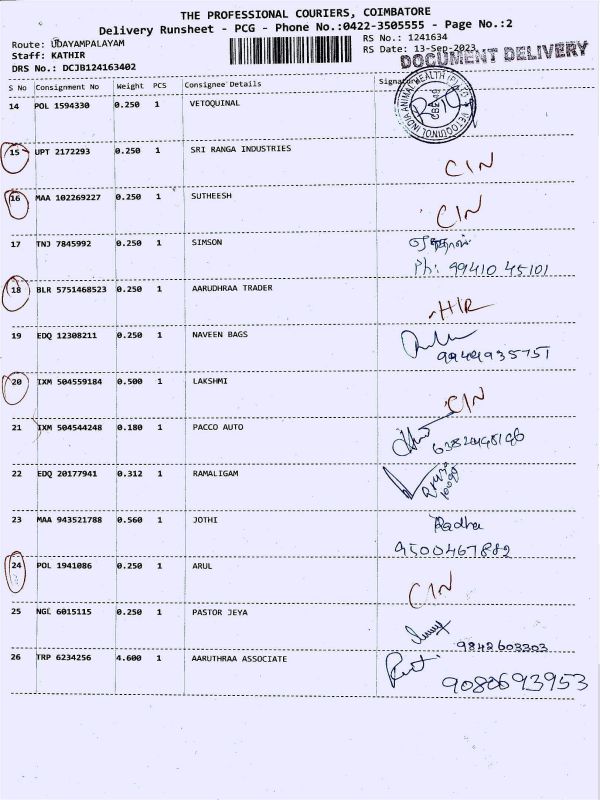 THE PROFESSIONAL COURIERS, COIMBATORE
Delivery Runsheet - PCG - Phone No.:0422-3505555 - Page No.:2
Route: UDAYAMPALAYAM
RS No.: 1241634
Staff: KATHIR
RS Date: 13-Sep-2023
DRS No.: DCJB124163402
DOCUMENT DELIVERY
S No Consignment No Weight PCS Consignee Details Signature
14 POL 1594330 0.250 1 VETOQUINAL
15 UPT 2172293 0.250 1 SRI RANGA INDUSTRIES CIN
16 MAA 102269227 0.250 1 SUTHEESH CIN
17 TNJ 7845992 0.250 1 SIMSON
Ph: 99410 45101
18 BLR 5751468523 0.250 1 AARUDHRAA TRADER HIR
19 EDQ 12308211 0.250 1 NAVEEN BAGS
9944935751
20 IXM 504559184 0.500 1 LAKSHMI CIN
21 IXM 504544248 0.180 1 PACCO AUTO
22 EDQ 20177941 0.312 1 RAMALIGAM
23 MAA 943521788 0.560 1 JOTHI Radha
9500467882
24 POL 1941086 0.250 1 ARUL CIN
25 NGL 6015115 0.250 1 PASTOR JEYA
9842603303
26 TRP 6234256 4.600 1 AARUTHRAA ASSOCIATE
9080693953